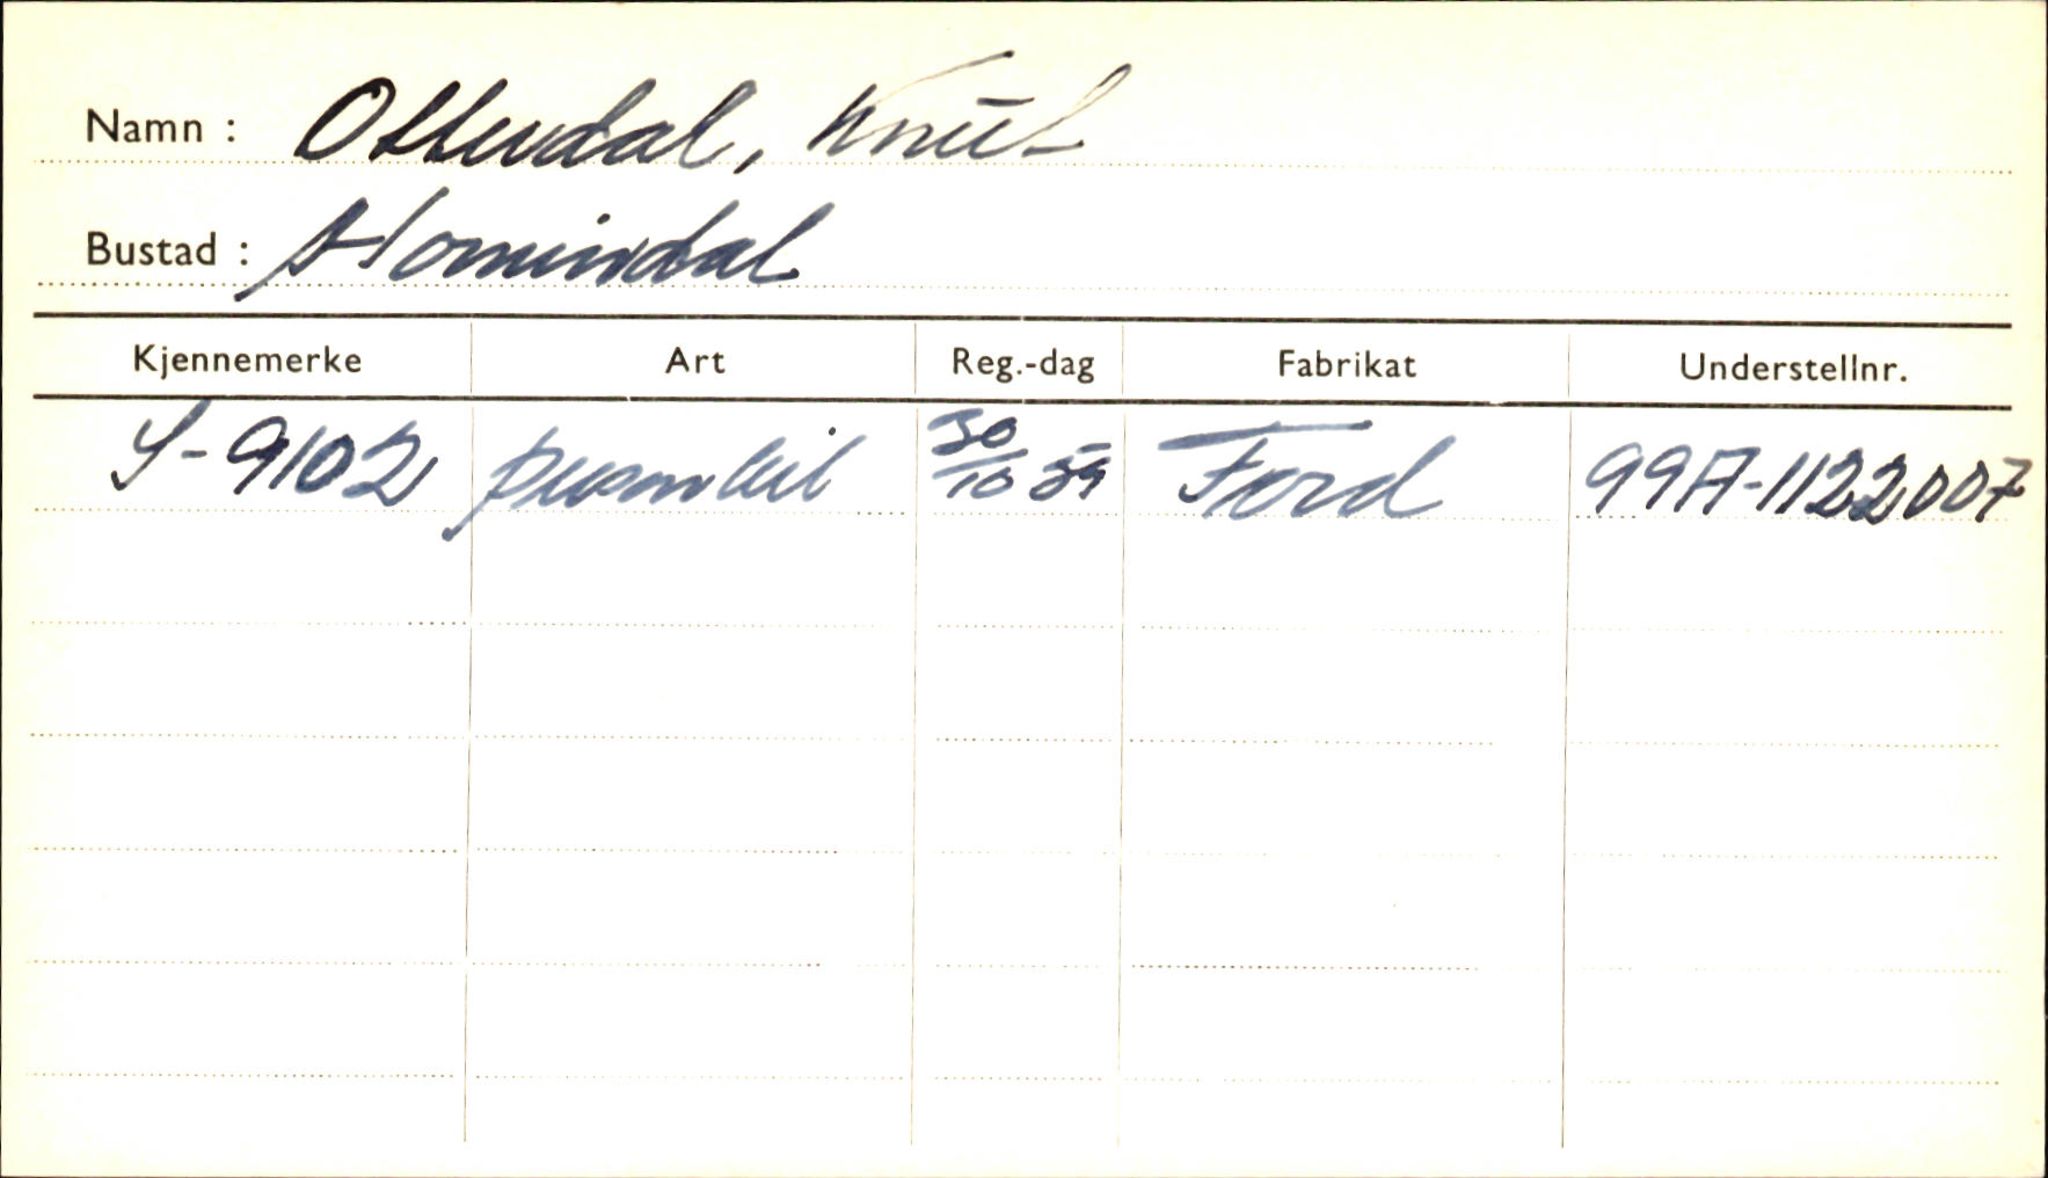 Namn : Otterdal, Knut
Bustad : Hornindal
Kjennemerke Art Reg.-dag Fabrikat Understellnr.
S-9102 personbil 30/10 59 Ford 99A-1122007